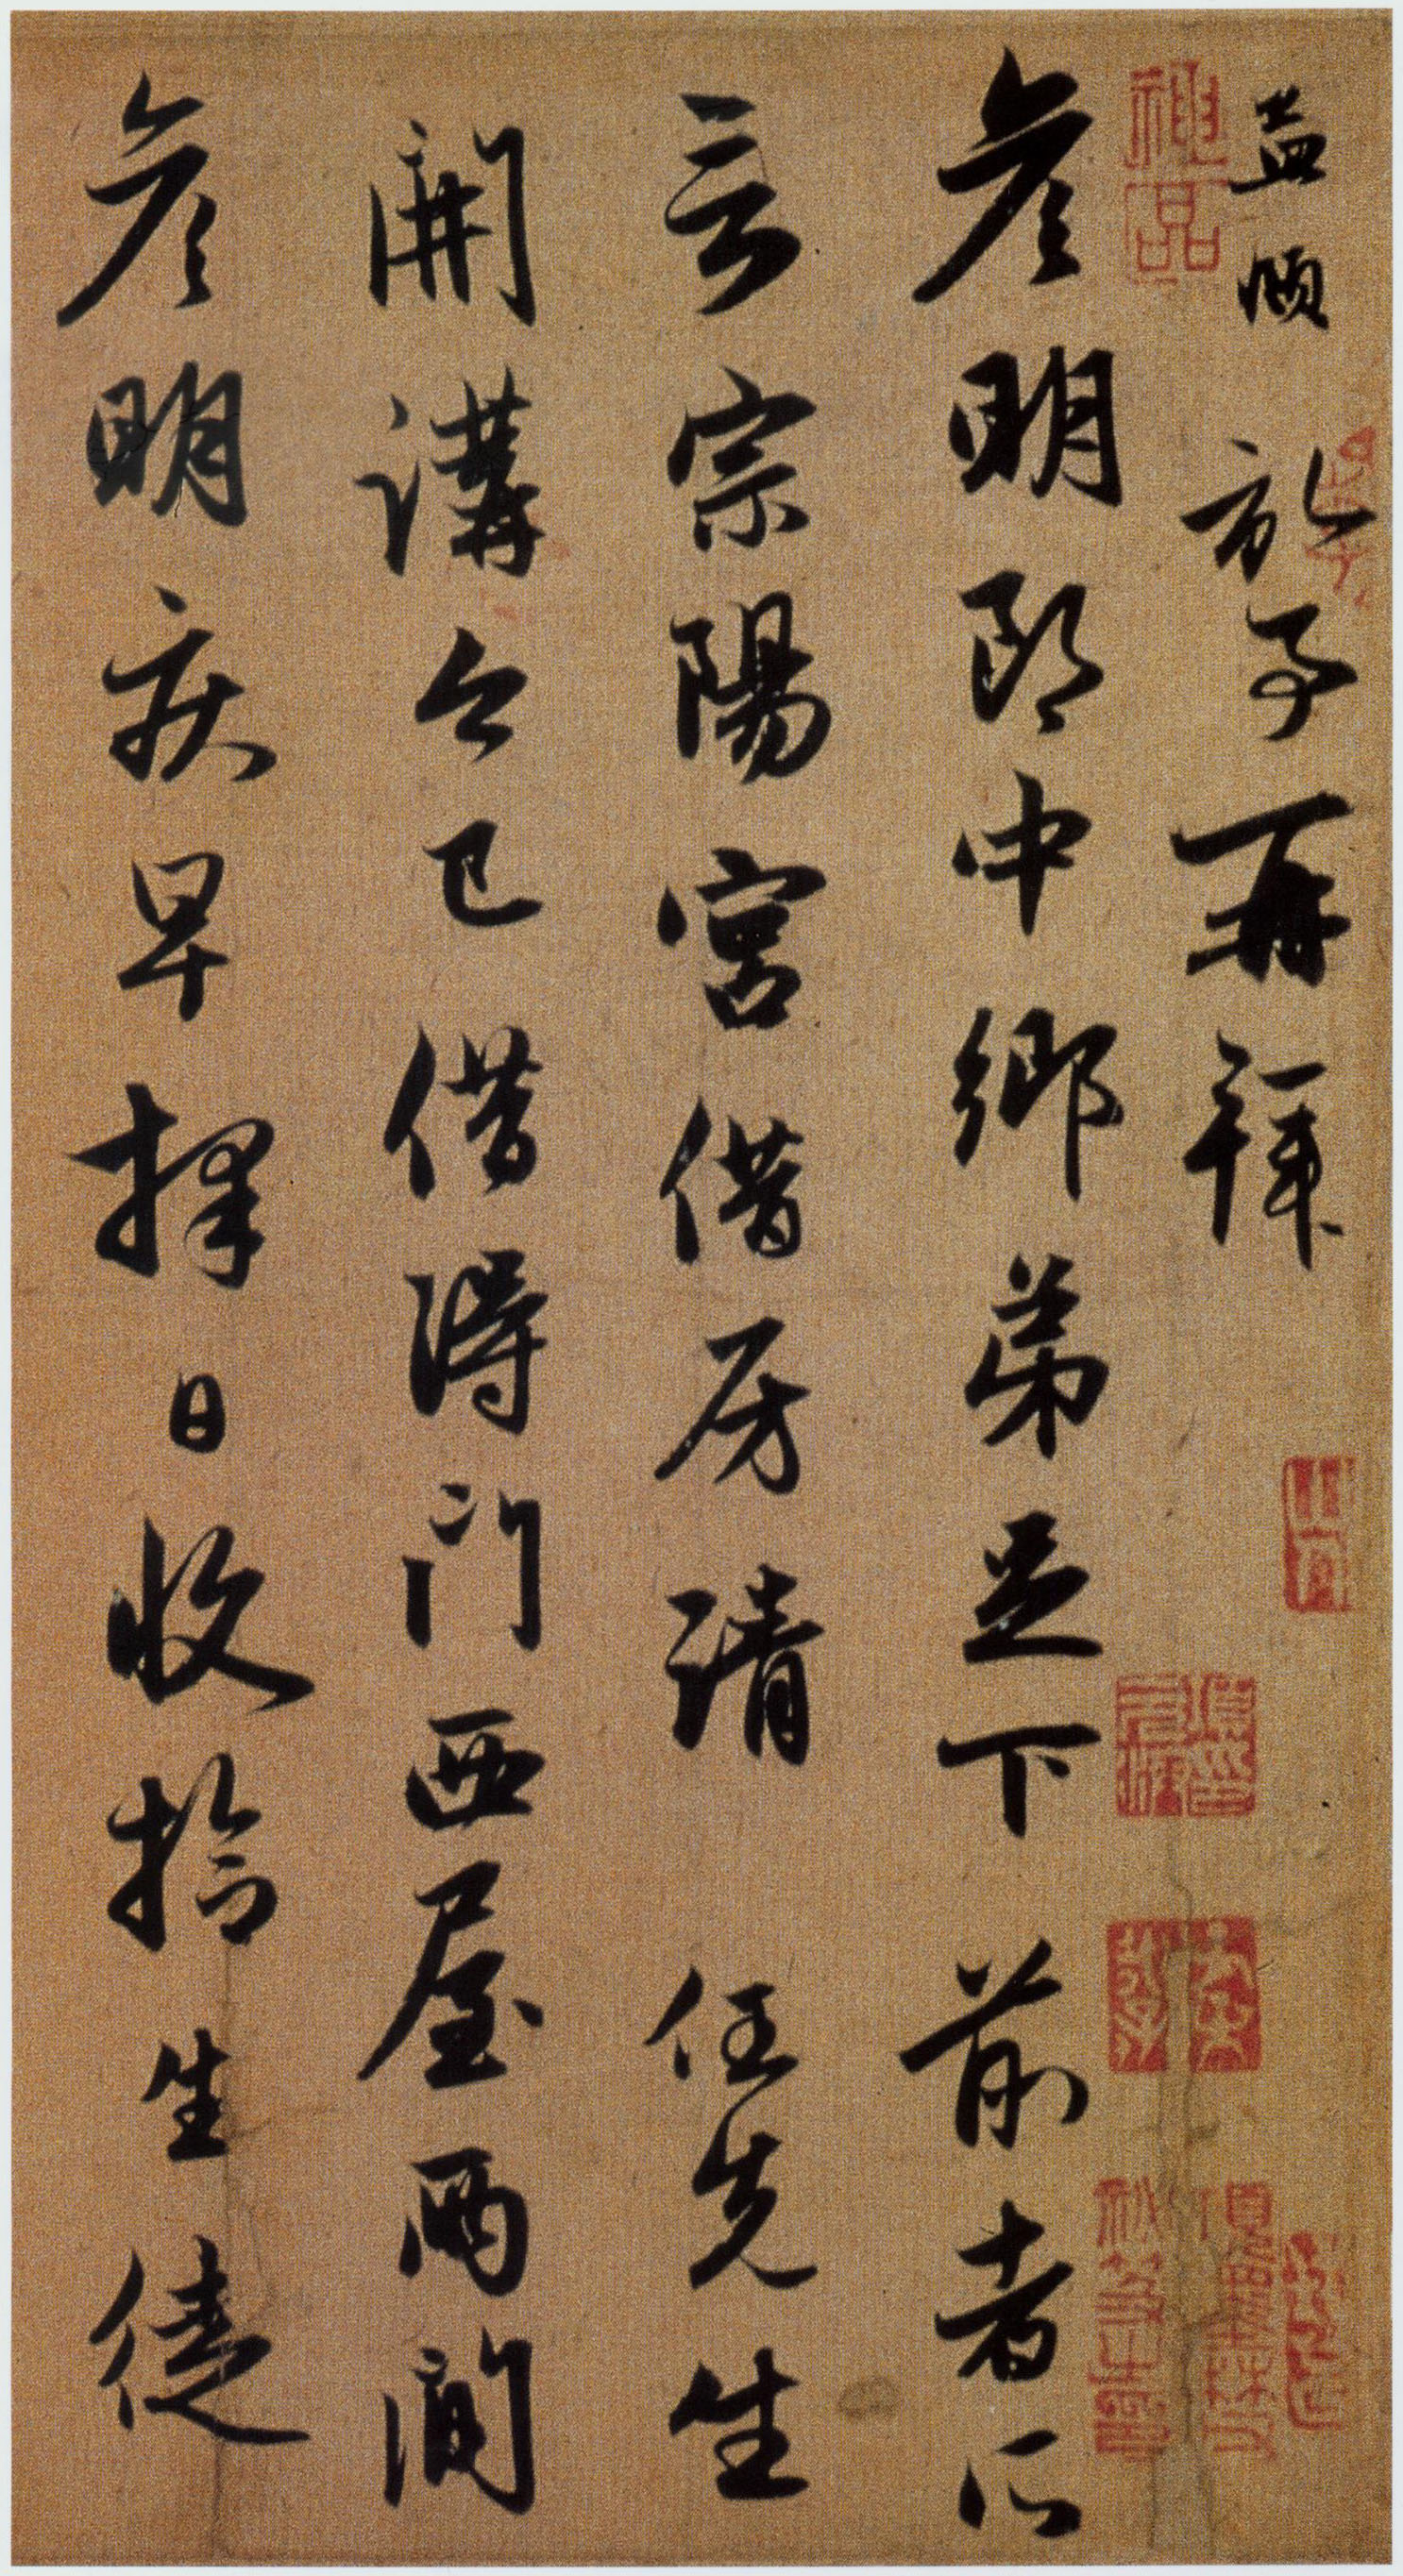 孟頫於子再拜
彦明郎中鄉弟足下前者所
言宗陽宮借房請任先生
開講今已借得門西屋兩間
彦明疾早擇日收拾生徒
神品